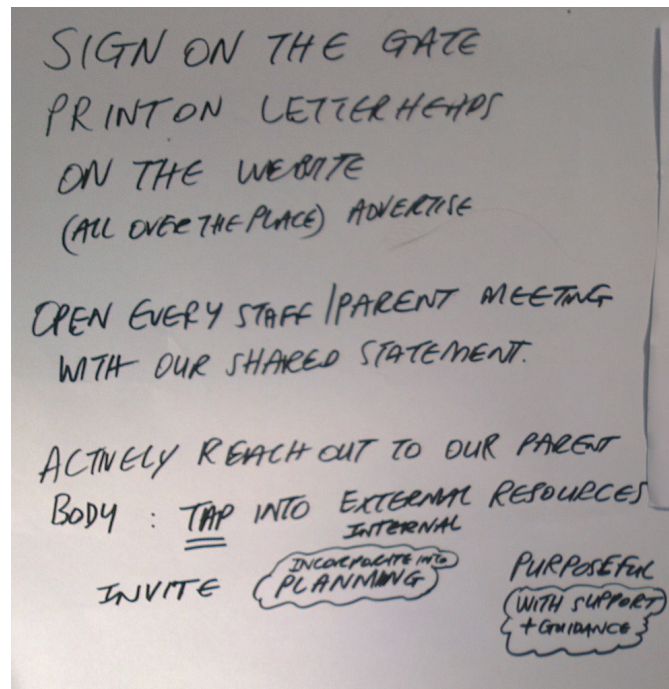 SIGN ON THE GATE
PRINT ON LETTERHEADS
ON THE WEBSITE
(ALL OVER THE PLACE) ADVERTISE
OPEN EVERY STAFF/PARENT MEETING
WITH OUR SHARED STATEMENT.
ACTIVELY REACH OUT TO OUR PARENT
BODY : TAP INTO EXTERNAL RESOURCES
INTERNAL
INVITE INCORPORATE INTO PLANNING PURPOSEFUL
WITH SUPPORT
+ GUIDANCE